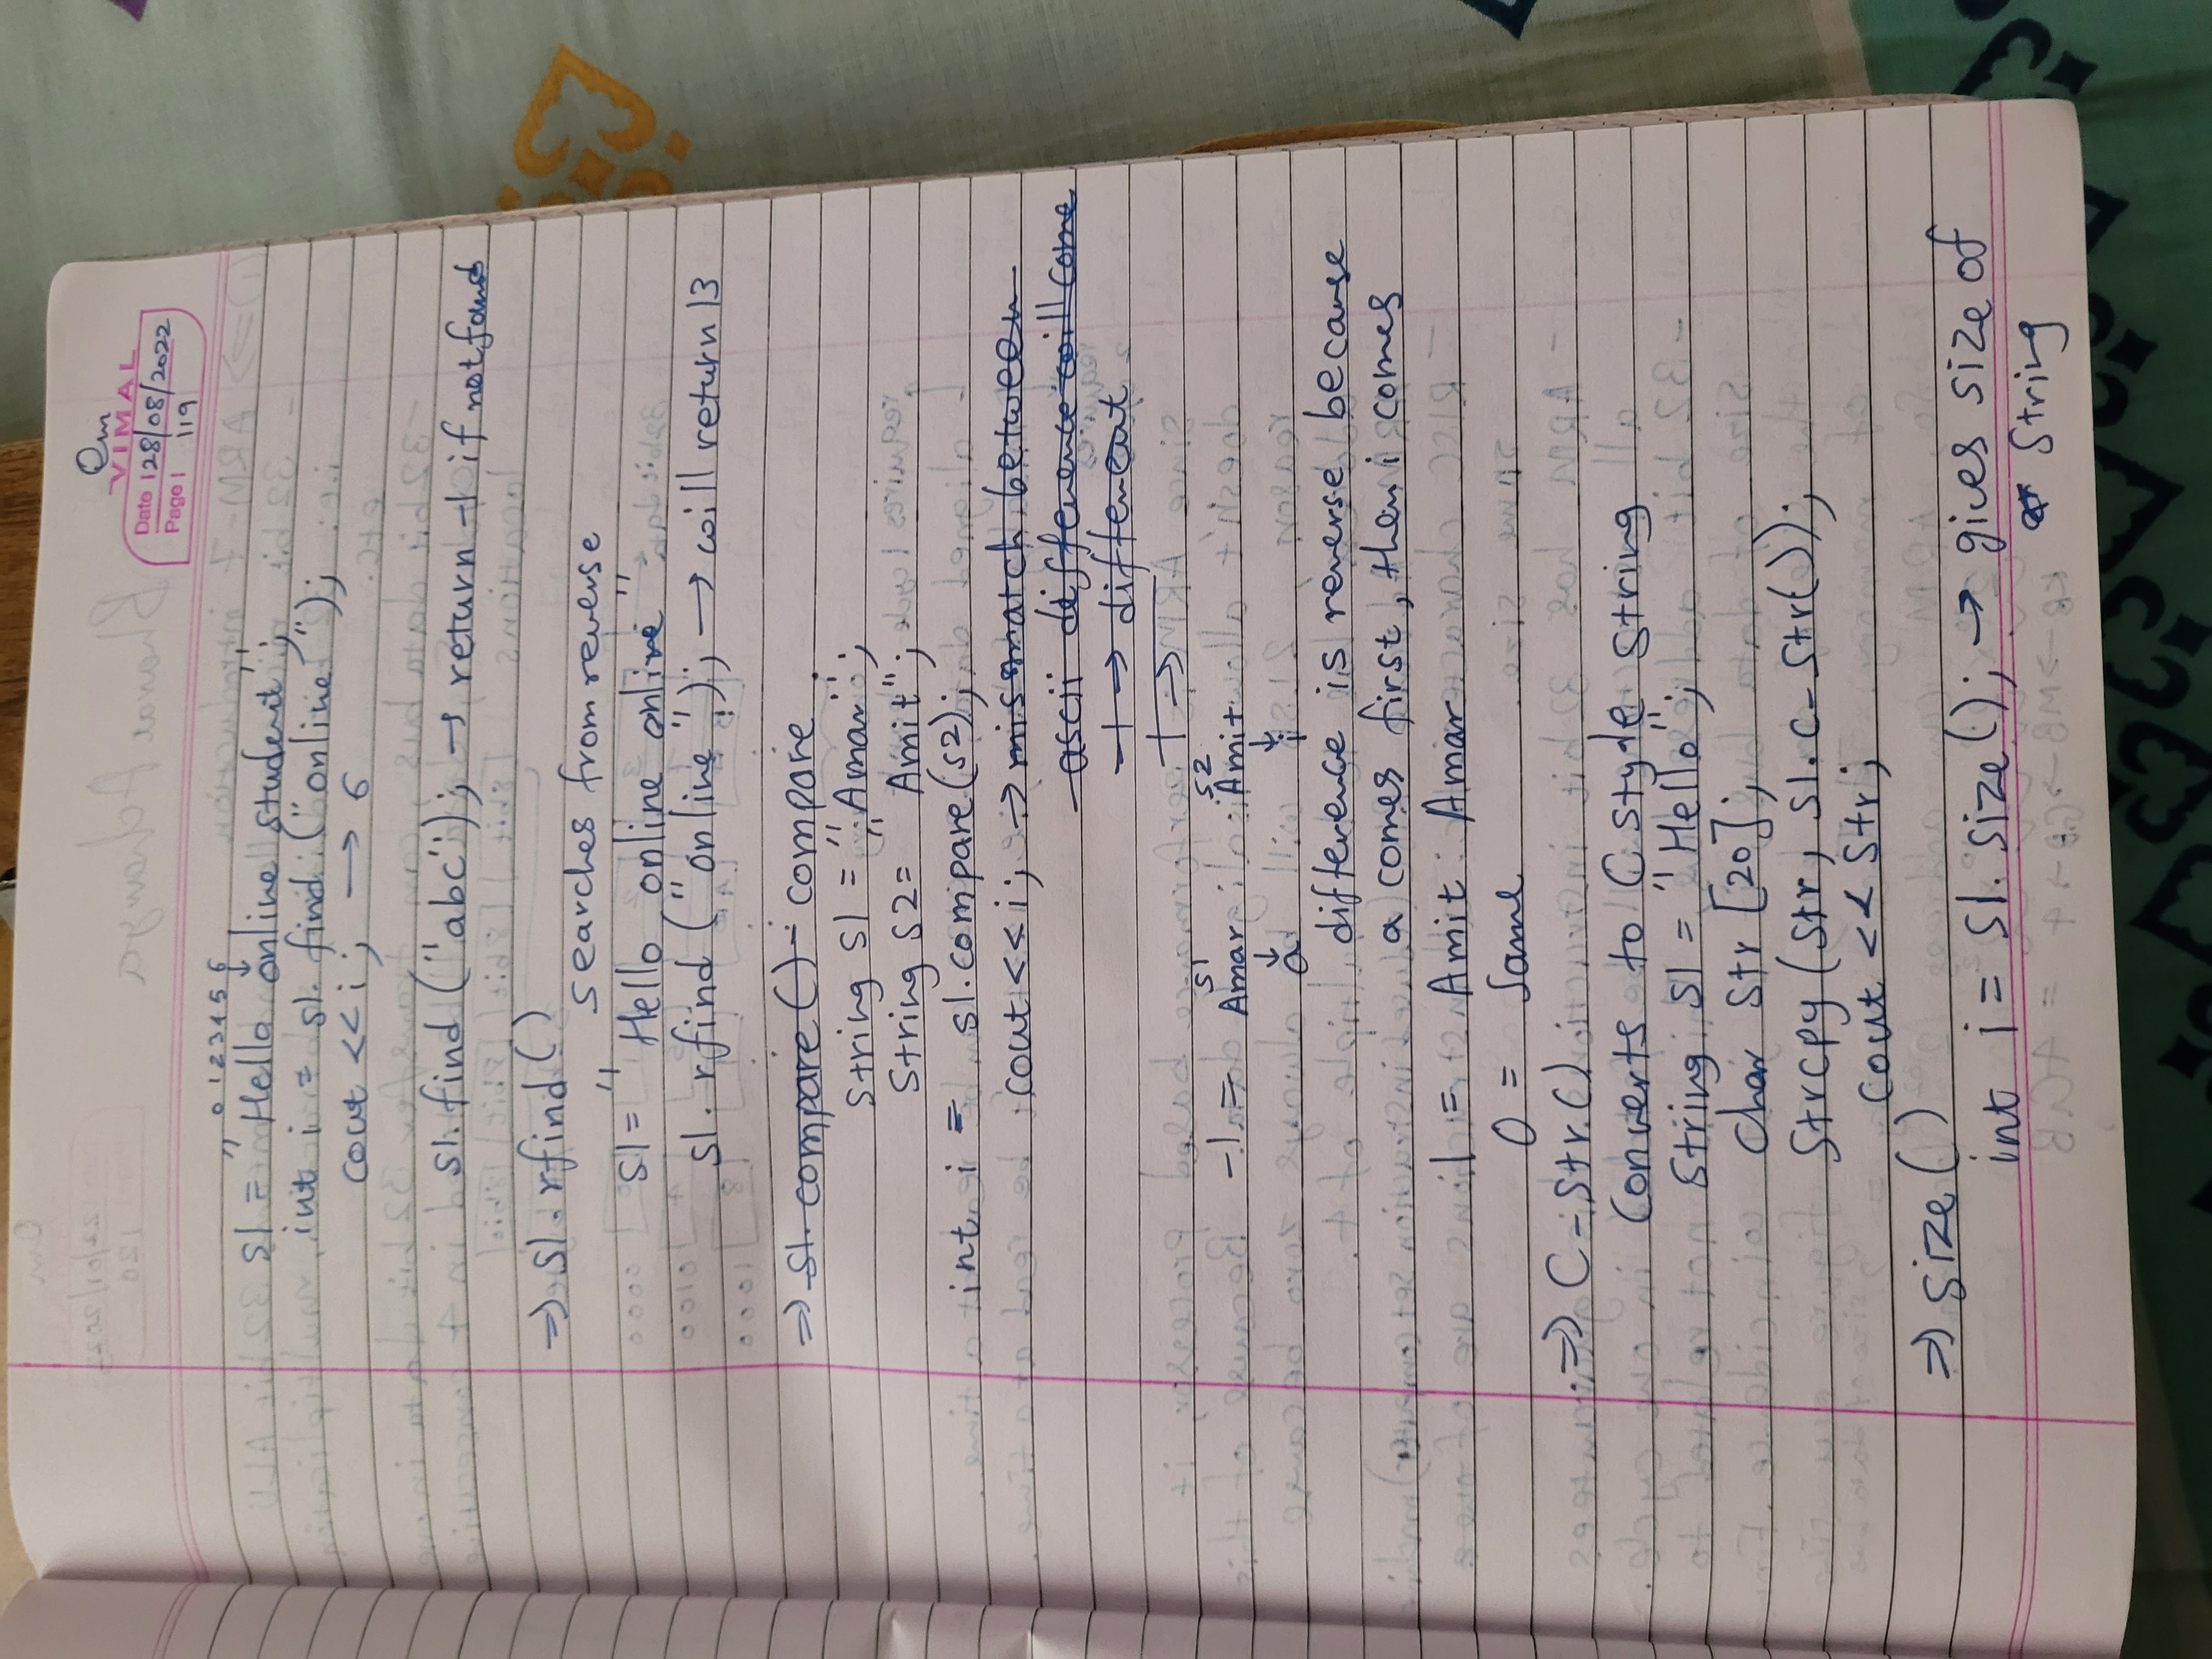 Om
VIMAL
Date 28/08/2022
Page 119
0 1 2 3 4 5 6
s1 = "Hello online student";
int i = s1.find ("online");
cout << i; → 6
s1.find ("abc"); → return -1 if not found
⇒ s1.rfind ()
searches from reverse
s1 = "Hello online online"
s1.rfind ("online"); → will return 13
⇒ s1.compare () - compare
string s1 = "Amar";
String s2 = "Amit";
int i = s1.compare(s2);
cout << i; → mismatch between
ascii difference will come
-1 ⇒ different
1 ⇒
s1 s2
-1 = Amar Amit
↓ ↓
a i
difference is reverse because
a comes first, then i comes
1 = Amit Amar
0 = Same
⇒ C-str()
Converts to C Style string
String s1 = "Hello";
char str [20];
Strcpy (str, s1.c-str());
cout << str;
⇒ size ()
int i = s1.size(); → gives size of
string